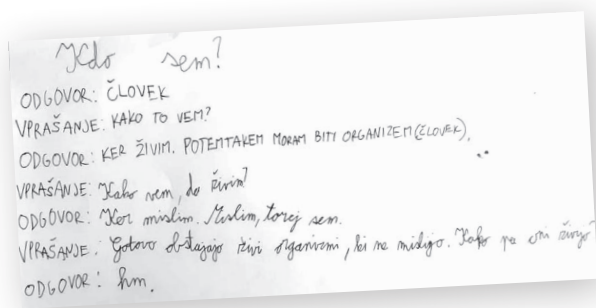 Kdo sem?
ODGOVOR: ČLOVEK
VPRAŠANJE: KAKO TO VEM?
ODGOVOR: KER ŽIVIM. POTEMTAKEM MORAM BITI ORGANIZEM (ČLOVEK).
VPRAŠANJE: Kako vem, da živim?
ODGOVOR: Ker mislim. Mislim, torej sem.
VPRAŠANJE. Gotovo obstajajo živi organizmi, ki ne mislijo. Kako pa oni živijo?
ODGOVOR: hm.